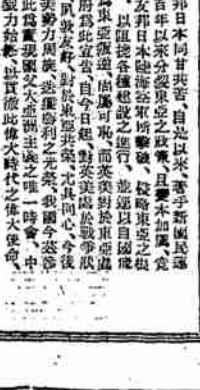 邦日本同甘共苦、自是以來、著手新國民運
百年以來分裂東亞之政策、且變本加厲、竟
友邦日本陸海空軍所擊破、侵略東亞之根
以阻撓各種建設之進行、並運以自國飛
東亞叛逆、尚屬可恥、而英美對於東亞處
府爲此宣告、自今日起、對英美處於戰爭狀
對於東亞共榮、尤其同心、今後
美勢力周旋、迭獲勝利之光榮、我國今茲參
此爲實現國父大亞洲主義之唯一時會、中
毅力始終、以貫澈此偉大時代之偉大使命、